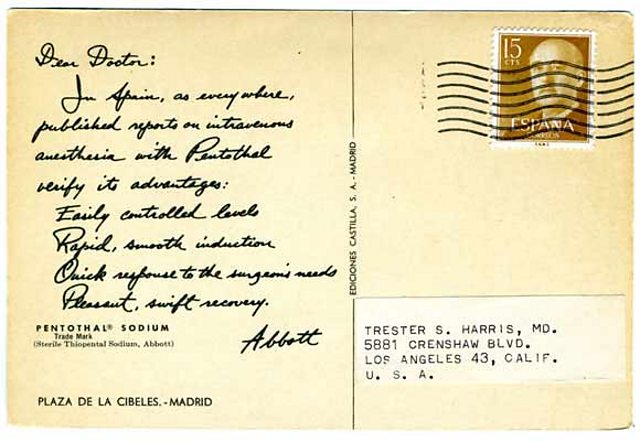 Dear Doctor:
In Spain, as everywhere,
published reports on intravenous
anesthesia with Pentothal
verify its advantages:
Easily controlled levels
Rapid, smooth induction
Quick response to the surgeon's needs
Pleasant, swift recovery.
Abbott
PENTOTHAL® SODIUM
Trade Mark
(Sterile Thiopental Sodium, Abbott)
PLAZA DE LA CIBELES.-MADRID
EDICIONES CASTILLA, S. A. - MADRID
15
CTS
ESPAÑA
CORREOS
TRESTER S. HARRIS, MD.
5881 CRENSHAW BLVD.
LOS ANGELES 43, CALIF.
U. S. A.